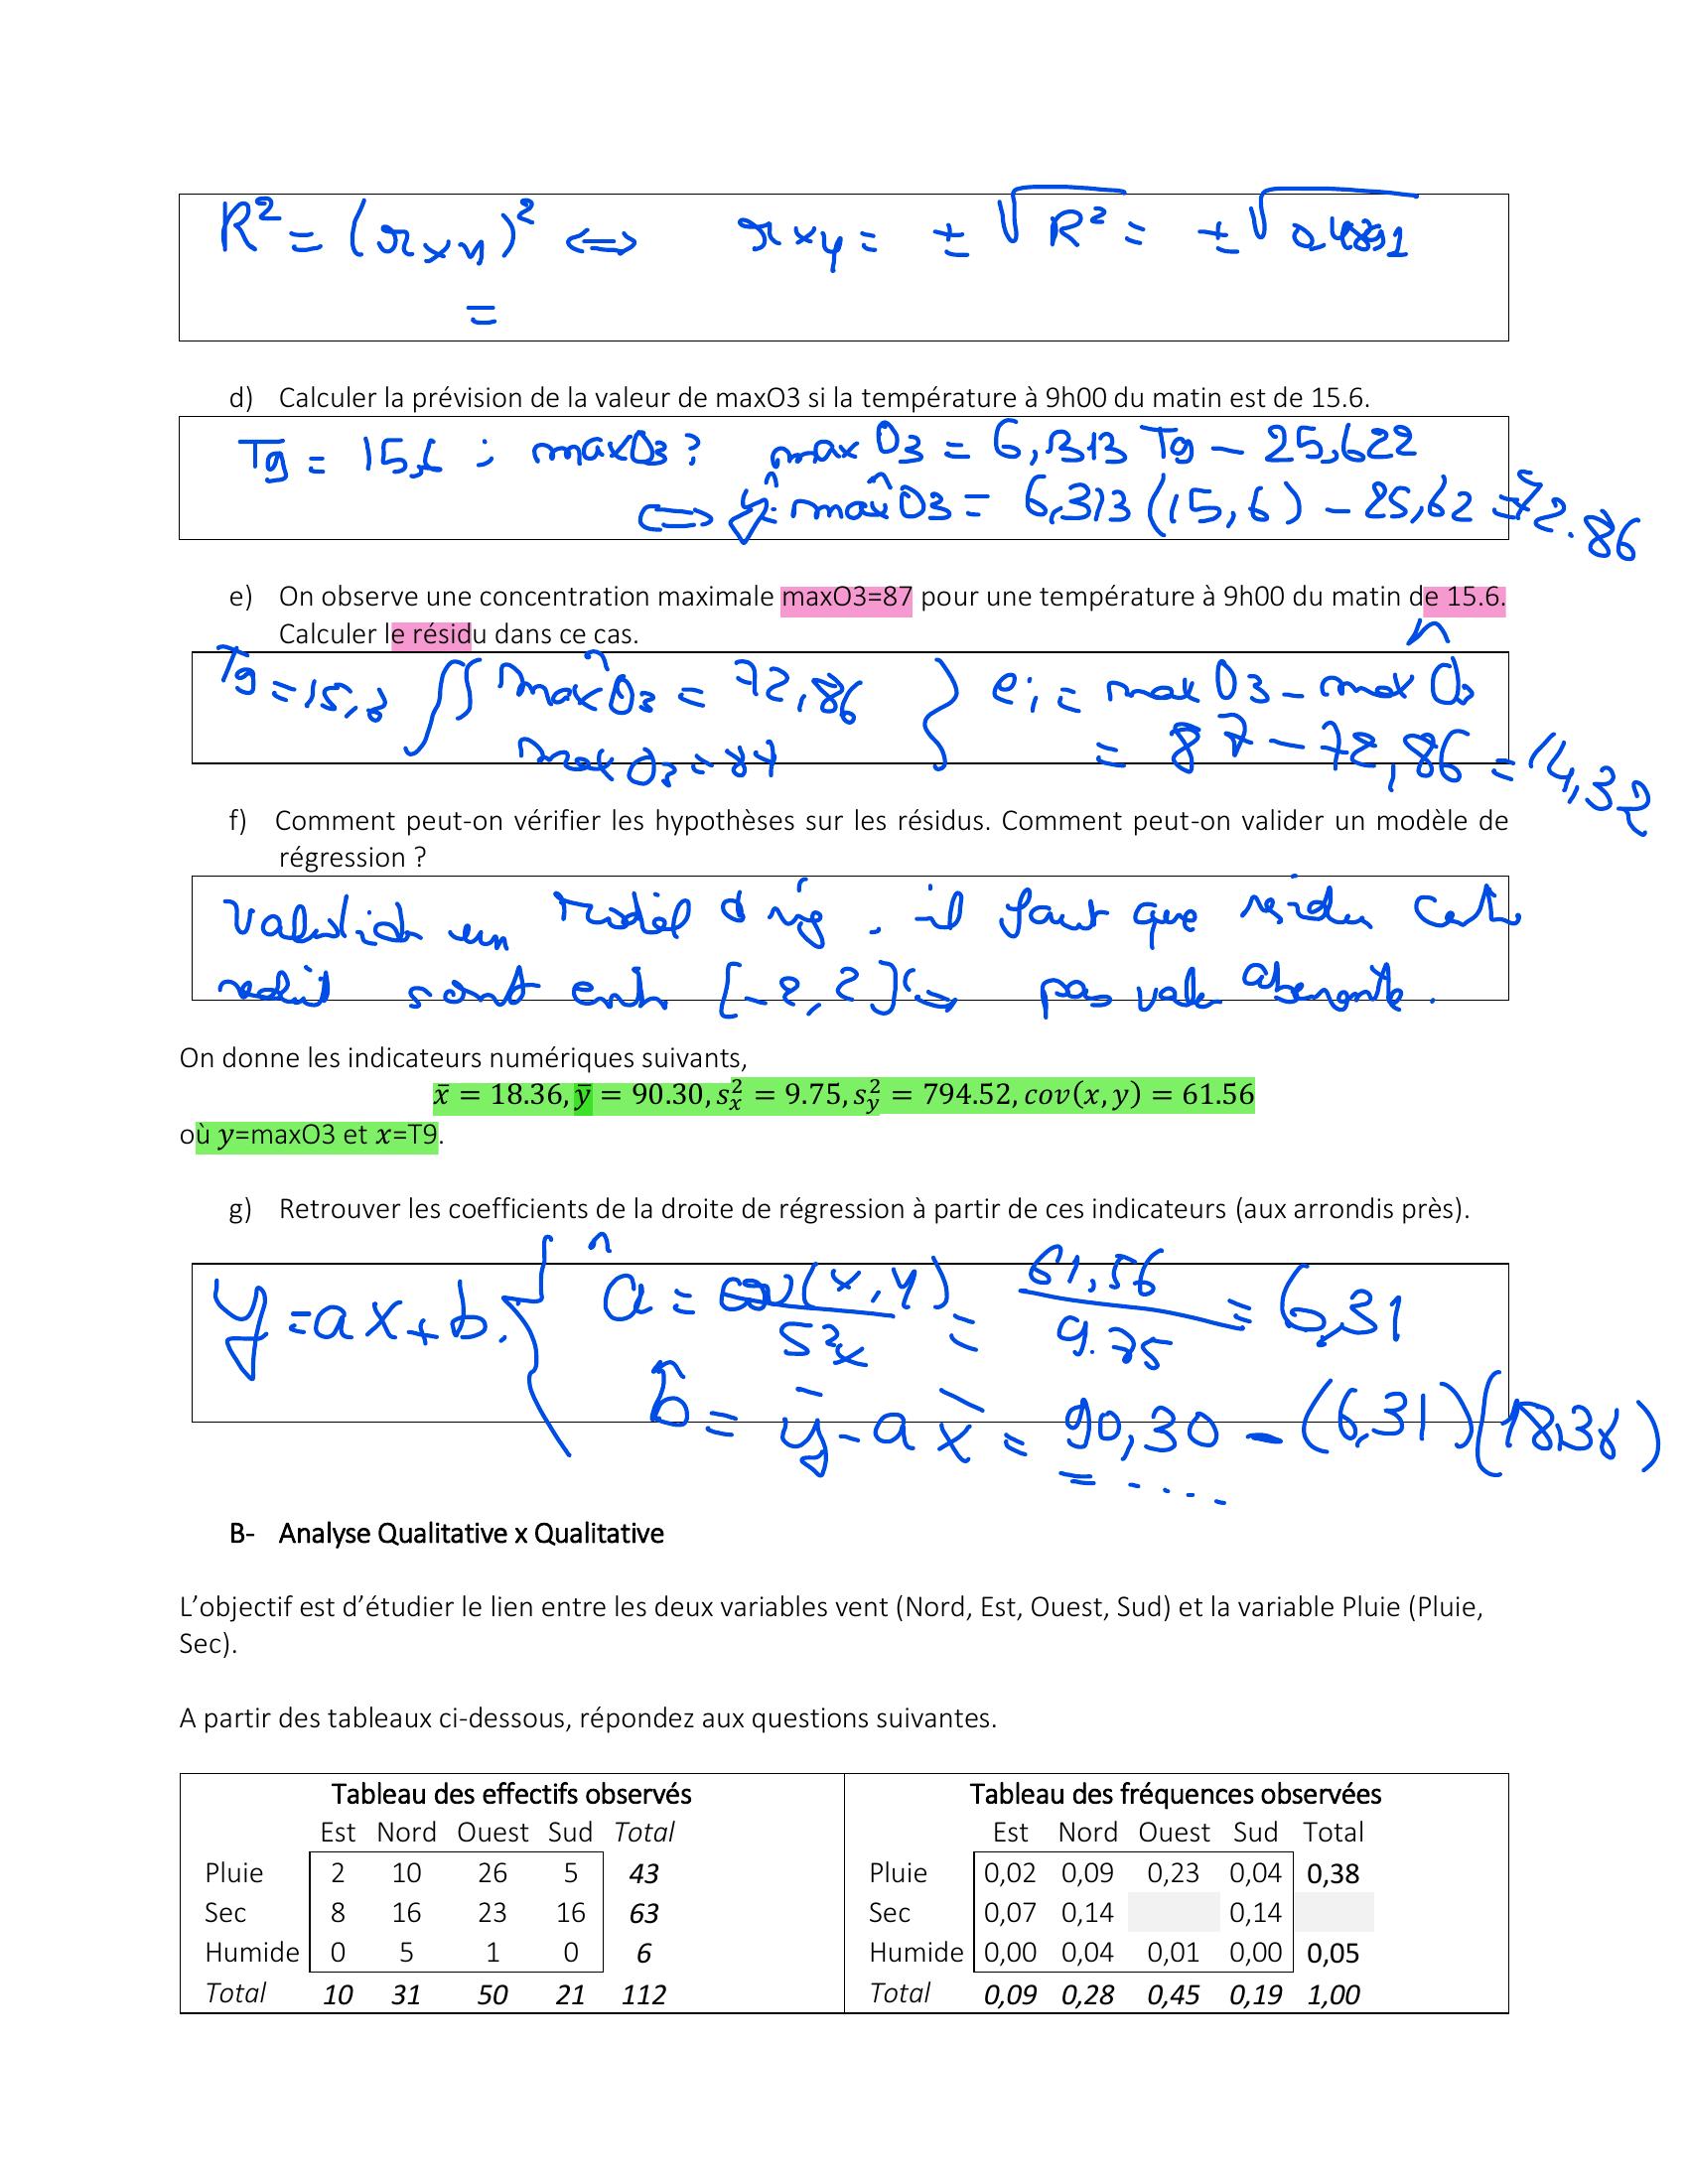 R² = (r xy)² ⟺ r xy = ± √R² = ± √0,4891
=
d) Calculer la prévision de la valeur de maxO3 si la température à 9h00 du matin est de 15.6.
T9 = 15,6 ; maxO3 ? max O3 = 6,313 T9 − 25,622
⟺ maxO3 = 6,313 (15,6) − 25,62 = 72.86
e) On observe une concentration maximale maxO3=87 pour une température à 9h00 du matin de 15.6.
Calculer le résidu dans ce cas.
T9 = 15,3 { max̂O3 = 72,86 } ei = max O3 − max Ô3
maxO3 = 87 = 87 − 72,86 = 14,32
f) Comment peut-on vérifier les hypothèses sur les résidus. Comment peut-on valider un modèle de
régression ?
un d . il faut que résidu
réduit sont entre [-2, 2] ⟺ pas aberrante.
On donne les indicateurs numériques suivants,
x̄ = 18.36, ȳ = 90.30, s²ₓ = 9.75, s²ᵧ = 794.52, cov(x, y) = 61.56
où y=maxO3 et x=T9.
g) Retrouver les coefficients de la droite de régression à partir de ces indicateurs (aux arrondis près).
y = ax + b. { â = cov(x,y) / s²x = 61,56 / 9.75 = 6,31
b̂ = ȳ − a x̄ = 90,30 − (6,31)(18,36)
= ....
B- Analyse Qualitative x Qualitative
L’objectif est d’étudier le lien entre les deux variables vent (Nord, Est, Ouest, Sud) et la variable Pluie (Pluie,
Sec).
A partir des tableaux ci-dessous, répondez aux questions suivantes.
Tableau des effectifs observés
Est Nord Ouest Sud Total
Pluie 2 10 26 5 43
Sec 8 16 23 16 63
Humide 0 5 1 0 6
Total 10 31 50 21 112
Tableau des fréquences observées
Est Nord Ouest Sud Total
Pluie 0,02 0,09 0,23 0,04 0,38
Sec 0,07 0,14 0,14
Humide 0,00 0,04 0,01 0,00 0,05
Total 0,09 0,28 0,45 0,19 1,00